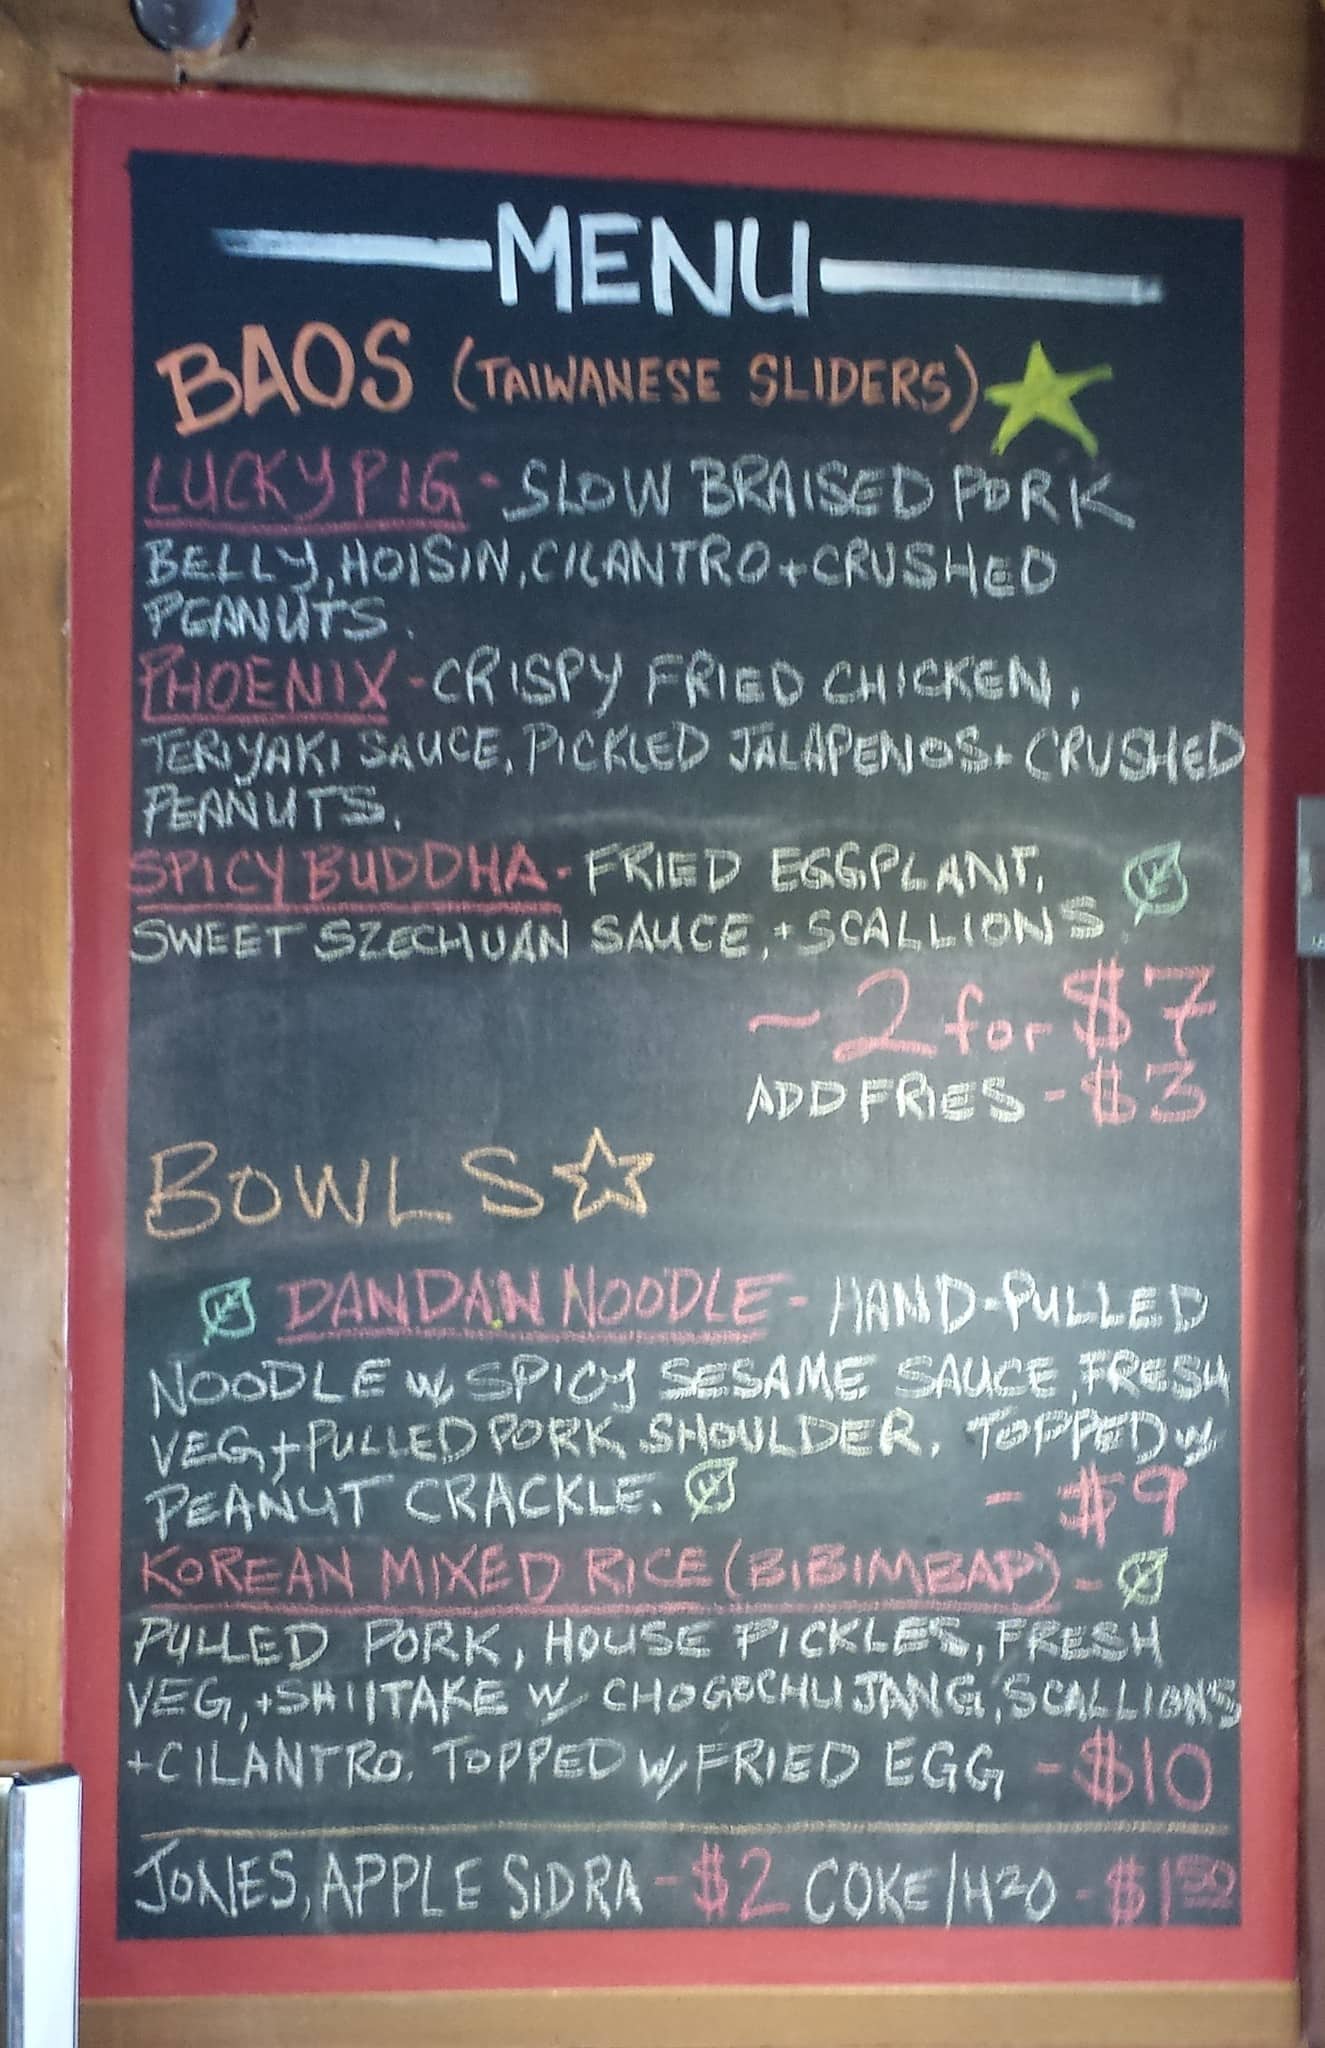 MENU
BAOS (TAIWANESE SLIDERS)
LUCKY PIG - SLOW BRAISED PORK
BELLY, HOISIN, CILANTRO + CRUSHED
PEANUTS.
PHOENIX - CRISPY FRIED CHICKEN,
TERIYAKI SAUCE, PICKLED JALAPENOS + CRUSHED
PEANUTS.
SPICY BUDDHA - FRIED EGGPLANT,
SWEET SZECHUAN SAUCE, + SCALLIONS
~2 for $7
ADD FRIES - $3
BOWLS
DANDAN NOODLE - HAND-PULLED
NOODLE w/ SPICY SESAME SAUCE, FRESH
VEG + PULLED PORK SHOULDER. TOPPED w/
PEANUT CRACKLE. - $9
KOREAN MIXED RICE (BIBIMBAP) -
PULLED PORK, HOUSE PICKLES, FRESH
VEG, + SHIITAKE w/ CHOGOCHUJANG, SCALLIONS
+ CILANTRO. TOPPED w/ FRIED EGG - $10
JONES, APPLE SIDRA - $2 COKE/H20 - $1 50